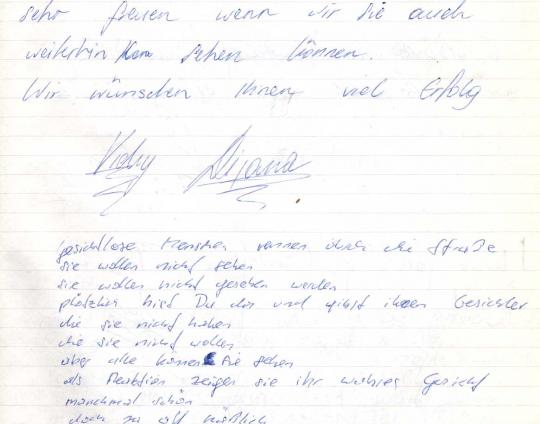 sehr freuen wenn wir sie auch
weiterhin sehen können.
Wir wünschen Ihnen viel Erfolg
Vicky Dijana
gesichtlose Menschen rennen durch die Straße
sie wollen nicht sehen
sie wollen nicht gesehen werden
plötzlich bist Du da und gibst ihnen Gesichter
die sie nicht haben
die sie nicht wollen
aber alle können sie sehen
als Reaktion zeigen sie ihr wahres Gesicht
manchmal schön
doch zu oft häßlich